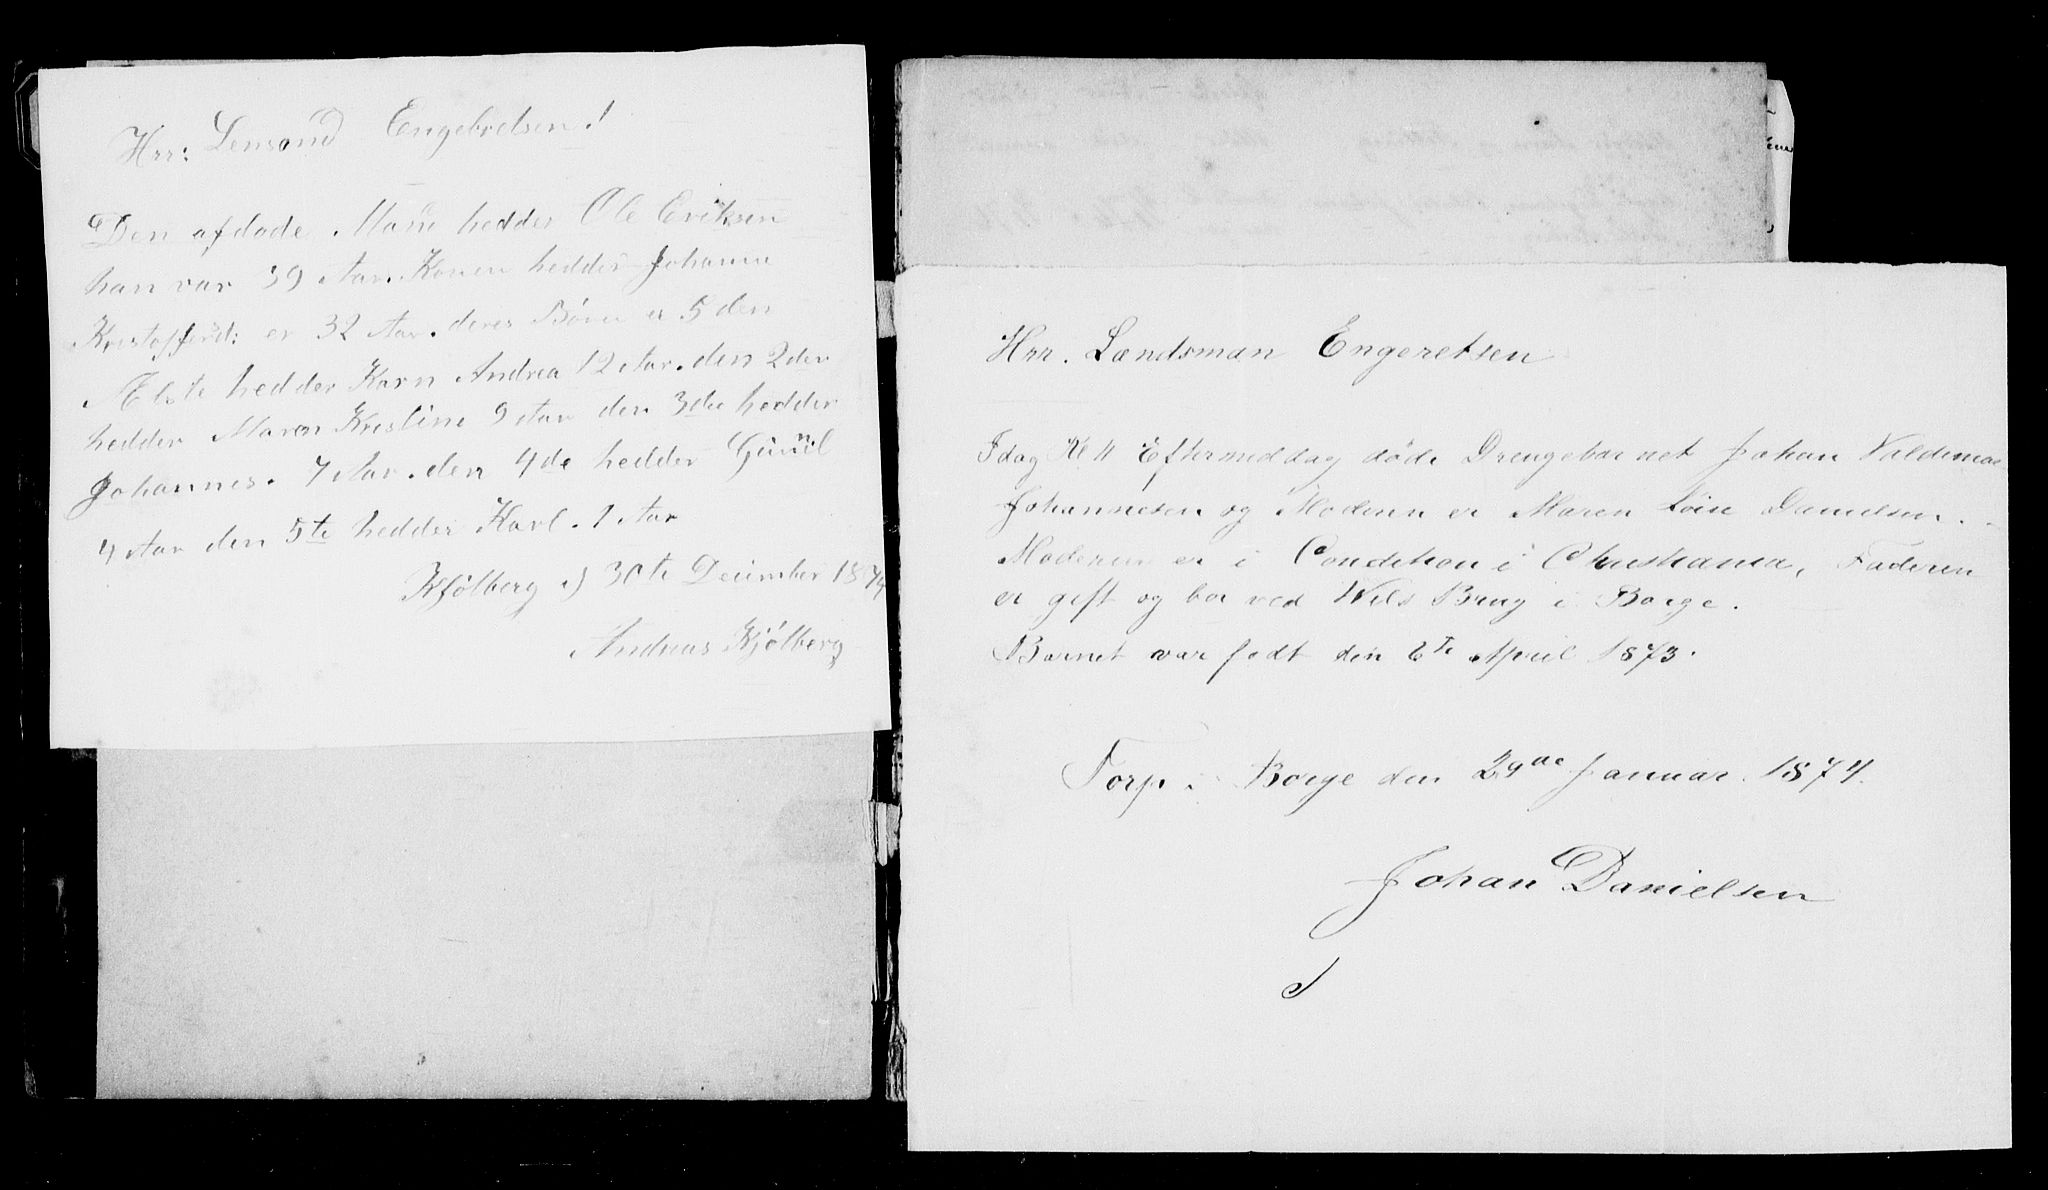 Hrr: Lensmd Engebretsen!
Den afdøde Man hedder Ole Eriksen
han var 39 Aar. Konen hedder Johanne
Kristoffersd: er 32 Aar. deres Børn er 5 den
Ælste hedder Karn Andrea 12 Aar. den 2den
hedder Maren Kristine 9 Aar den 3die hedder
Johannes. 7 Aar. den 4de hedder Gunnil
4 Aar den 5te hedder Karl. 1 Aar
Kjølberg d 30te Decimber 1874
Andreas Kjølberg
Hrr. Lændsman Engeretsen
Idag Kl 11 Eftermiddag døde Drengebarnet Johan Valdemar
Johannesen og Moderen er Maren Danielsen.
Moderen er i Condition i Christiania, Faderen
er gift og bor ved Brug i Borge.
Barnet var født den 6te April 1873.
Torp i Borge den 29de Januar 1874.
Johan Danielsen